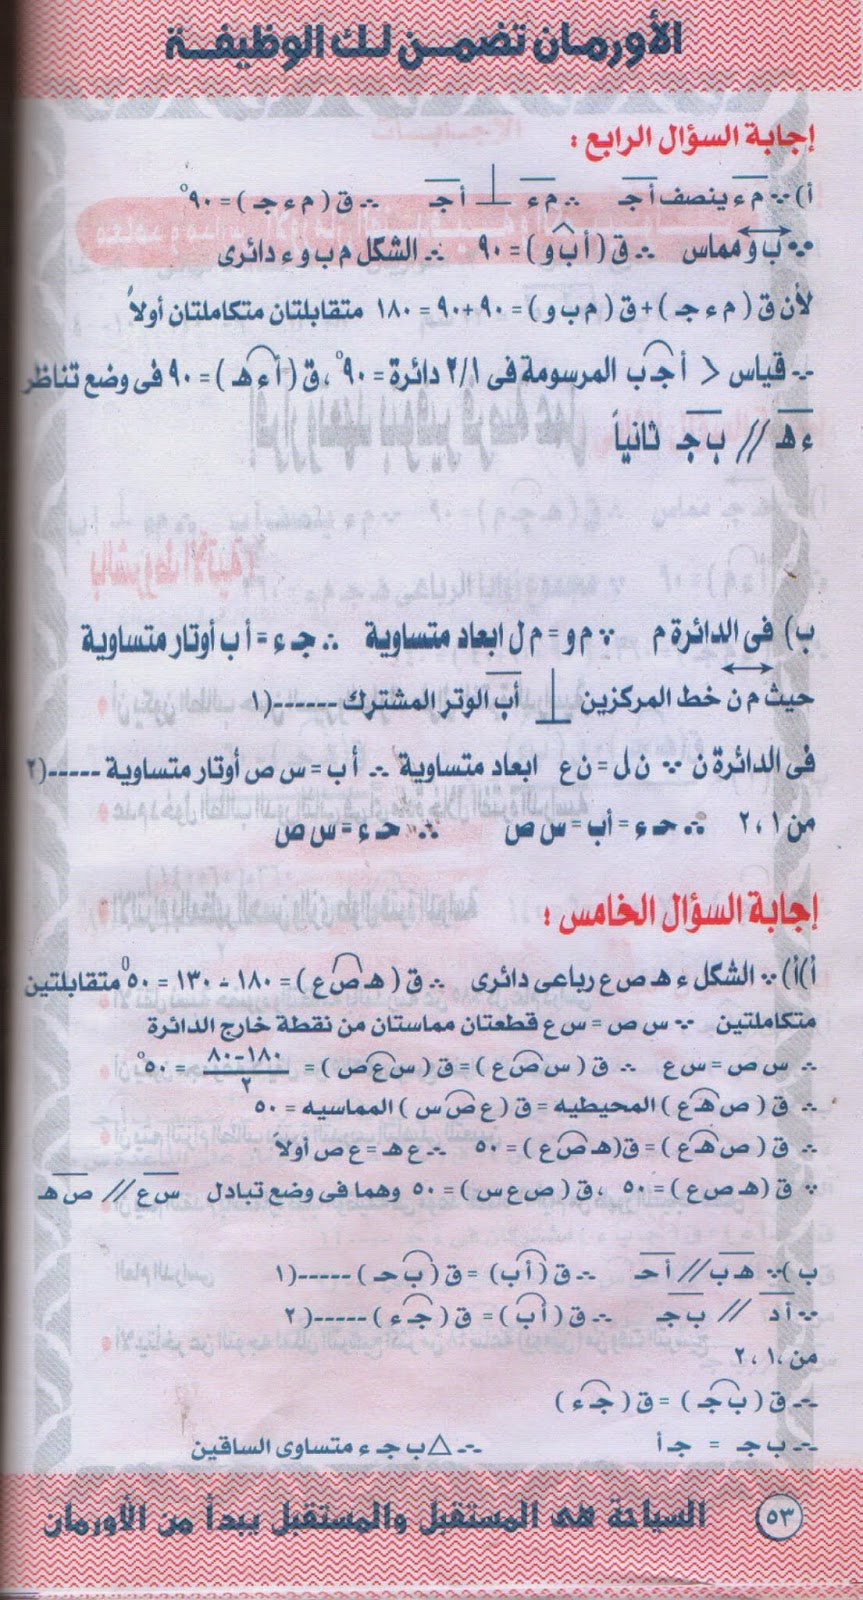 الأورمان تضمن لك الوظيفة
إجابة السؤال الرابع :
أ) ∵ م ء ينصف أ جـ ∴ م ء ⊥ أ جـ ∴ ق ( م ء جـ ) = ٩٠°
∵ ب و مماس ∴ ق ( أ ب و ) = ٩٠ ∴ الشكل م ب و ء دائرى
لأن ق ( م ء جـ ) + ق ( م ب و ) = ٩٠ + ٩٠ = ١٨٠ متقابلتان متكاملتان أولاً
∴ قياس < أ جـ ب المرسومة فى ٢/١ دائرة = ٩٠° ، ق ( أ ء هـ ) = ٩٠ فى وضع تناظر
ء هـ // ب جـ ثانياً
ب) فى الدائرة م ∵ م و = م ل ابعاد متساوية ∴ جـ ء = أ ب أوتار متساوية
حيث م ن خط المركزين ⊥ أ ب الوتر المشترك ------(١
فى الدائرة ن ∵ ن ل = ن ع ابعاد متساوية ∴ أ ب = س ص أوتار متساوية -----(٢
من ١ ، ٢ ∴ حـ ء = أب = س ص ∴ حـ ء = س ص
إجابة السؤال الخامس :
أ)أ) ∵ الشكل ء هـ ص ع رباعى دائرى ∴ ق ( هـ ص ع ) = ١٨٠ - ١٣٠ = ٥٠° متقابلتين
متكاملتين ∵ س ص = س ع قطعتان مماستان من نقطة خارج الدائرة
∴ س ص = س ع ∴ ق ( س ص ع ) = ق ( س ع ص ) = ١٨٠-٨٠ / ٢ = ٥٠°
∴ ق ( ص هـ ع ) المحيطيه = ق ( ع ص س ) المماسيه = ٥٠
∴ ق ( ص هـ ع ) = ق( هـ ص ع ) = ٥٠ ∴ ع هـ = ع ص أولا
∵ ق ( هـ ص ع ) = ٥٠ ، ق ( ص ع س ) = ٥٠ وهما فى وضع تبادل س ع // ص هـ
ب ) ∵ هـ ب // أ حـ ∴ ق ( أ ب ) = ق ( ب حـ ) -----(١
∵ أ د // ب جـ ∴ ق ( أ ب ) = ق ( جـ ء ) -----(٢
من ، ١ ، ٢
∴ ق ( ب جـ ) = ق ( جـ ء )
∴ ب جـ = جـ أ ∴ △ ب جـ ء متساوى الساقين
٥٣ السياحة هى المستقبل والمستقبل يبدأ من الأورمان